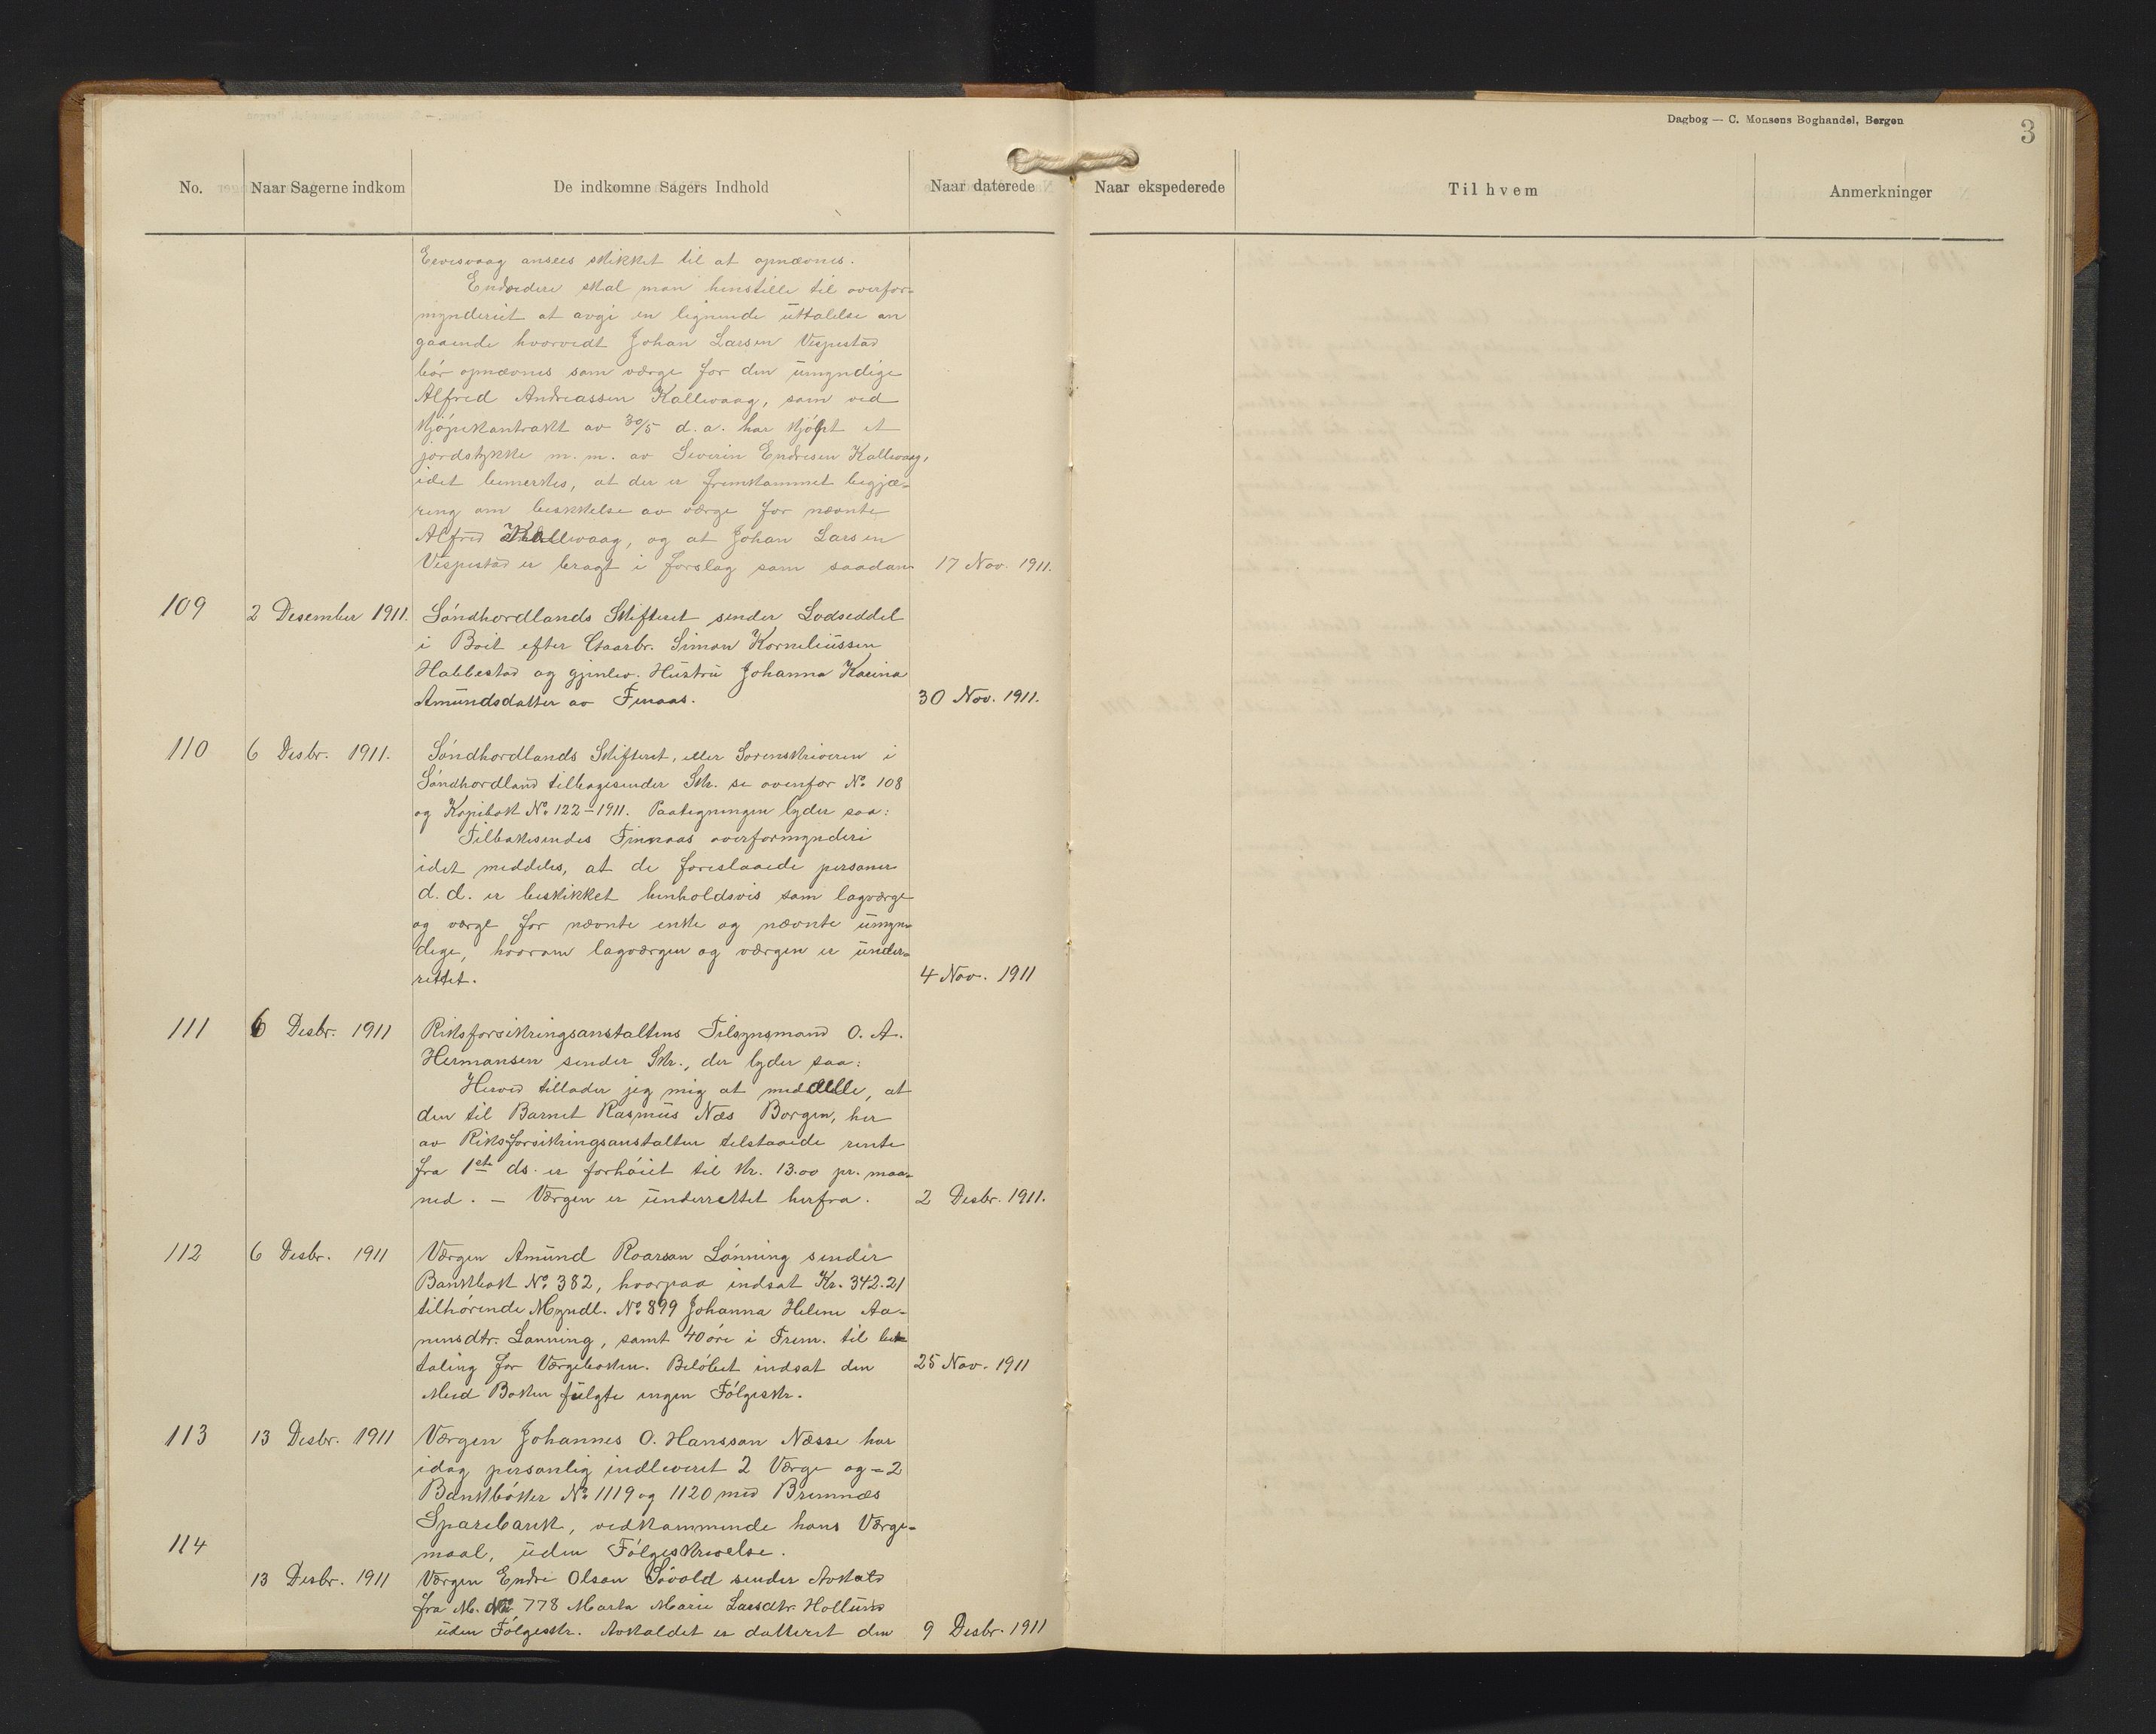 Dagbog — C. Monsens Boghandel, Bergen
3
No. Naar Sagerne indkom De indkomne Sagers Indhold Naar daterede Naar ekspederede Til hvem Anmerkninger
ansees skikket til at opnævnes.
Endvidere skal man henstille til overfor-
mynderiet at avgi en lignende uttalelse an
gaaende hvorvidt Johan Larsen Vespestad
bør opnævnes som værge for den umyndige
Alfred Andreassen Kallevaag, som ved
kjøpekontrakt av 30/5 d. a. har kjøpt et
jordstykke m. m. av Severin Endresen Kallevaag,
idet bemerkes, at der er fremkommet begjæ-
ring om beskikkelse av værge for nævnte
Alfred Kallevaag, og at Johan Larsen
Vespestad er bragt i forslag som saadan 17 Nov. 1911.
109 2 Desember 1911. Søndhordlands Skifteret sender Lodseddel
i Boet efter Gaarbr. Simon Korneliussen
Habbestad og gjenlev. Hustru Johanna Karina
Amundsdatter av Finaas. 30 Nov. 1911.
110 6 Desbr. 1911. Søndhordlands Skifteret, eller Sorenskriveren i
Søndhordland tilbagesender Skr. se ovenfor No 108
og Kopibok No 122–1911. Paategningen lyder saa:
Tilbakesendes Finnaas overformynderi
idet meddeles, at de foreslaaede personer
d. d. er beskikket henholdsvis som lagværge
og værge for nævnte enke og nævnte umyn-
dige, hvorom lagværgen og værgen er under-
rettet. 4 Nov. 1911
111 6 Desbr. 1911 Riksforsikringsanstaltens Tilsynsmand O. A.
Hermansen sender Skr., der lyder saa:
Herved tillader jeg mig at meddele, at
den til Barnet Rasmus Næs Borgen, her
av Riksforsikringsanstalten tilstaaede rente
fra 1ste ds. er forhøiet til kr. 13.00 pr. maa-
ned. – Værgen er underrettet herfra. 2 Desbr. 1911.
112 6 Desbr. 1911 Værgen Amund Roarson Lønning sender
Bankbok No 382, hvorpaa indsat Kr. 342.21
tilhørende Myndl. No 899 Johanna Helene Aa-
nensdtr. Lønning, samt 40 øre i Frim. til be-
taling for Værgeboken. Beløbet indsat den 25 Nov. 1911
Med Boken fulgte ingen Følgeskr.
113 13 Desbr. 1911 Værgen Johannes O. Hansson Næsse har
idag personlig indleveret 2 Værge og – 2
Bankbøker No 1119 og 1120 med Bremnæs
Sparebank, vedkommende hans Værge-
114 maal, uden Følgeskrivelse.
13 Desbr. 1911 Værgen Endre Olson Søvold sender Avkald
fra M. No 778 Marta Marie Larsdtr. Hollund
uden Følgeskr. Avkaldet er datteret den 9 Desbr. 1911